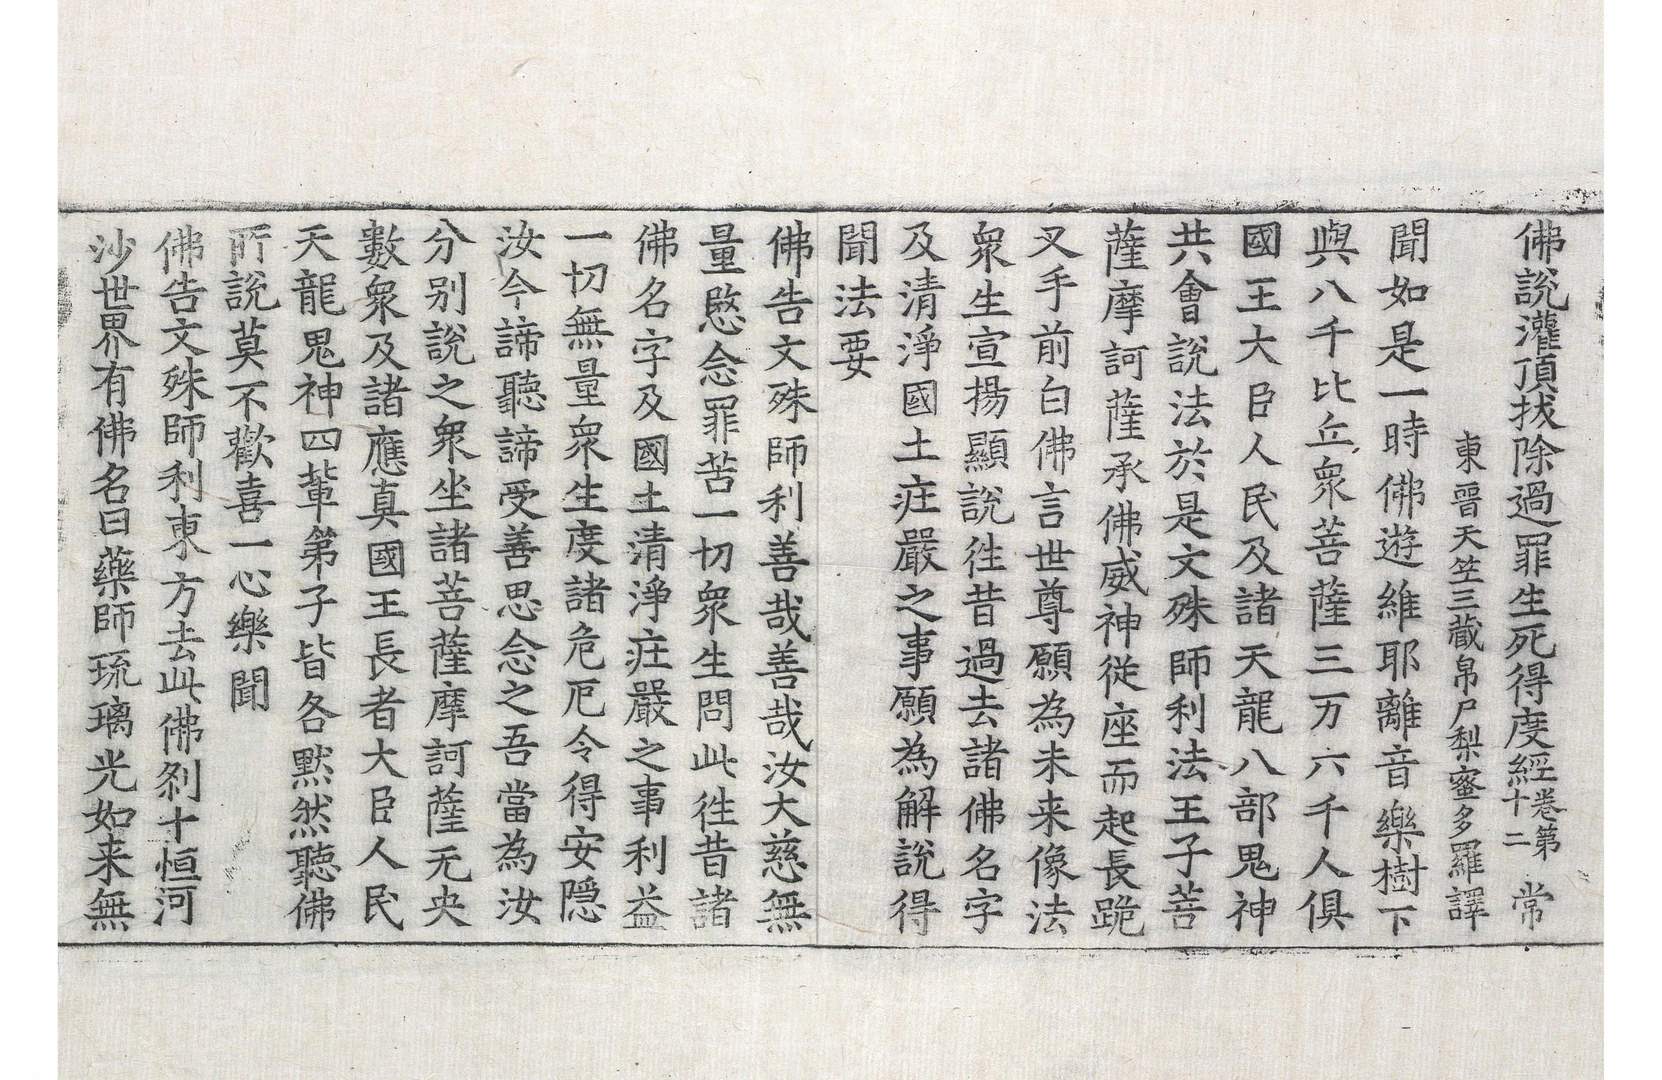 佛說灌頂拔除過罪生死得度經卷第十二 常
東晉天竺三藏帛尸梨蜜多羅譯
聞如是一時佛遊維耶離音樂樹下
與八千比丘衆菩薩三万六千人俱
國王大臣人民及諸天龍八部鬼神
共會說法於是文殊師利法王子菩
薩摩訶薩承佛威神從座而起長跪
叉手前白佛言世尊願為未来像法
衆生宣揚顯說徃昔過去諸佛名字
及清淨國土庄嚴之事願為解說得
聞法要
佛告文殊師利善哉善哉汝大慈無
量愍念罪苦一切衆生問此徃昔諸
佛名字及國土清淨庄嚴之事利益
一切無量衆生度諸危厄令得安隱
汝今諦聽諦受善思念之吾當為汝
分别說之衆坐諸菩薩摩訶薩无央
數衆及諸應真國王長者大臣人民
天龍鬼神四軰第子皆各默然聽佛
所說莫不歡喜一心樂聞
佛告文殊師利東方去此佛刹十恒河
沙世界有佛名曰藥師琉璃光如来無